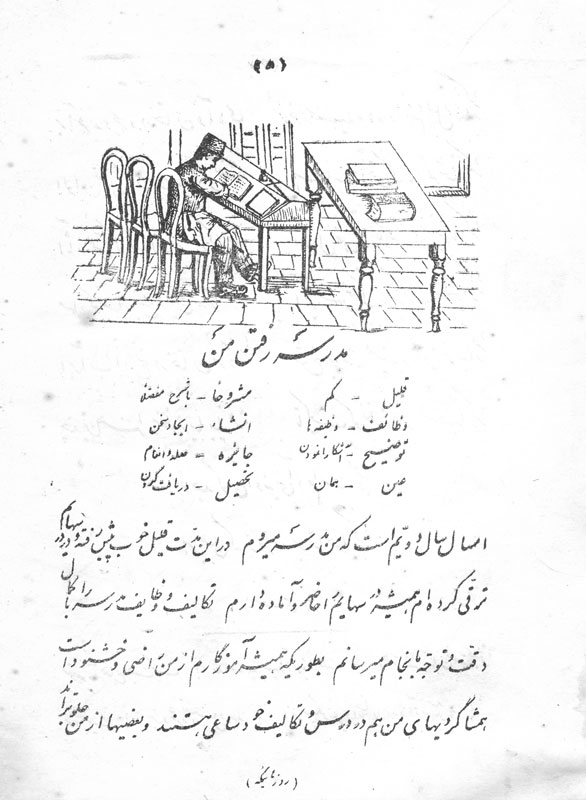 ﴿۵﴾
مدرسه رفتن من
قلیل - کم
مشروحاً - با شرح مفصل
وظائف - وظیفه‌ها
انشاء - ایجاد سخن
توضیح - آشکار نمودن
جائزه - صله و انعام
عین - همان
تحصیل - دریافت کردن
امسال سال دویم است که من مدرسه میروم در این مدت قلیل خوب پیش رفته و در درسهایم
ترقی کرده‌ام همیشه درسهایم را حاضر و آماده دارم تکالیف و وظایف مدرسه را با کمال
دقت و توجه بانجام میرسانم بطوریکه همیشه آموزگارم از من راضی و خشنود است
همشاگردیهای من هم در درس و تکالیف خود ساعی هستند و بعضیها از من جلوترند
(روزهائیکه)